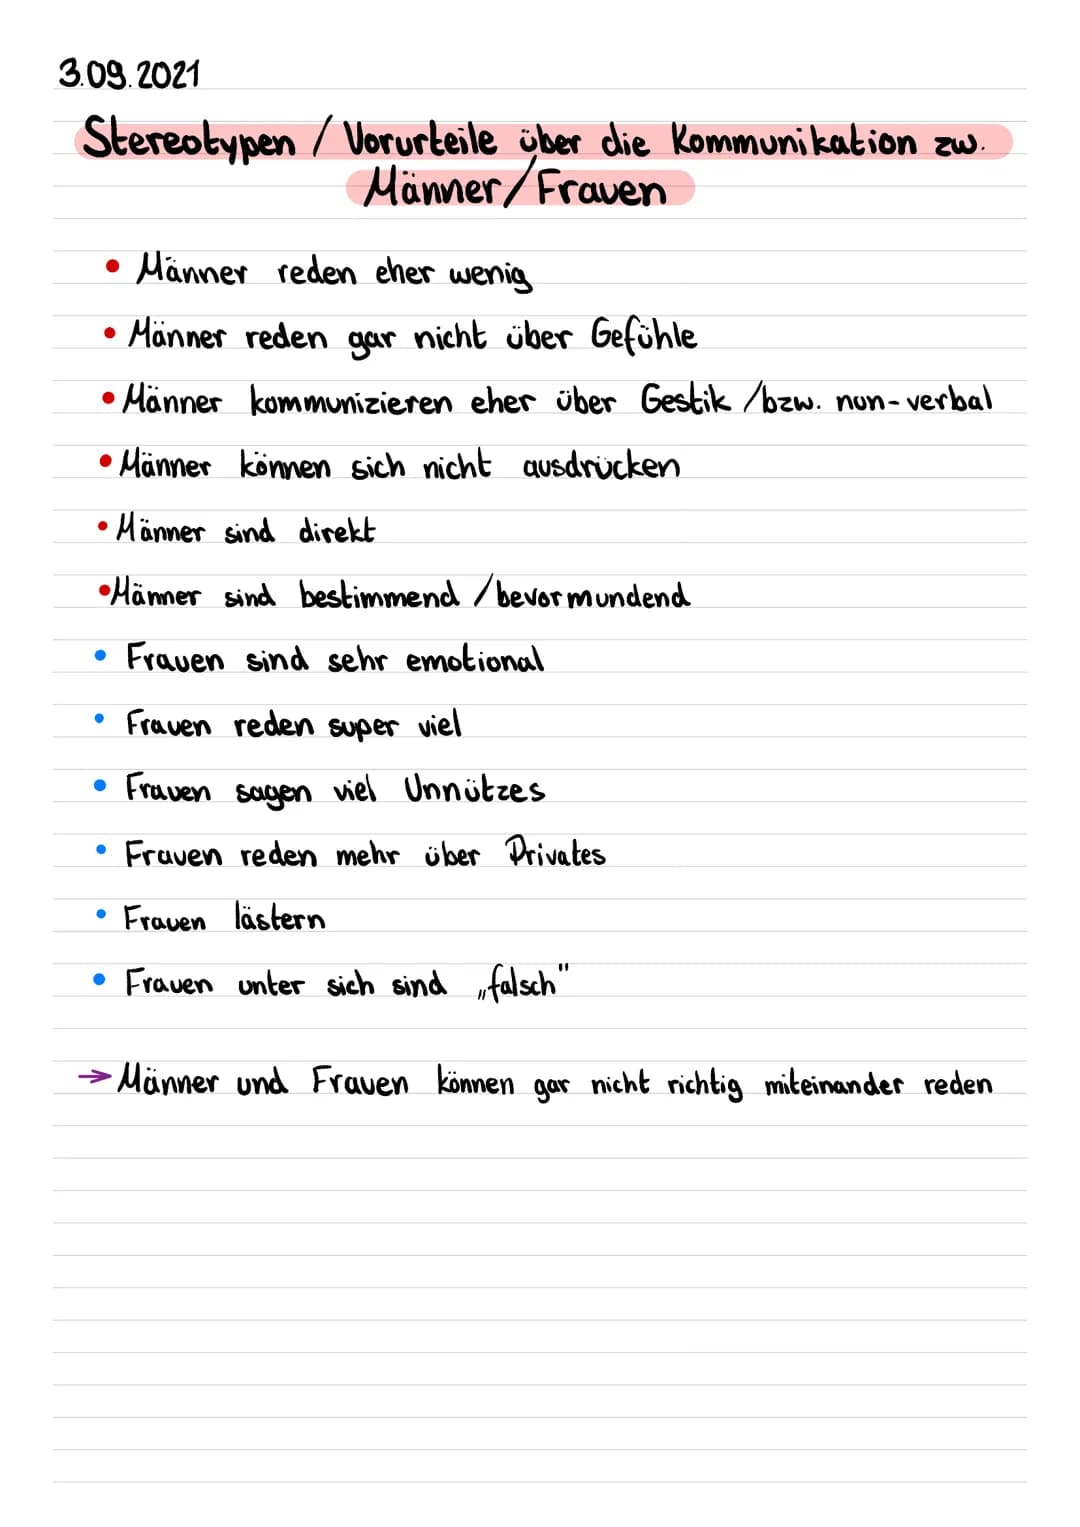 3.09.2021
Stereotypen / Vorurteile über die Kommunikation zw.
Männer/Frauen
• Männer reden eher wenig
• Männer reden gar nicht über Gefühle
• Männer kommunizieren eher über Gestik /bzw. non-verbal
• Männer können sich nicht ausdrücken
• Männer sind direkt
• Männer sind bestimmend /bevormundend
• Frauen sind sehr emotional
• Frauen reden super viel
• Frauen sagen viel Unnützes
• Frauen reden mehr über Privates
• Frauen lästern
• Frauen unter sich sind „falsch"
→ Männer und Frauen können gar nicht richtig miteinander reden